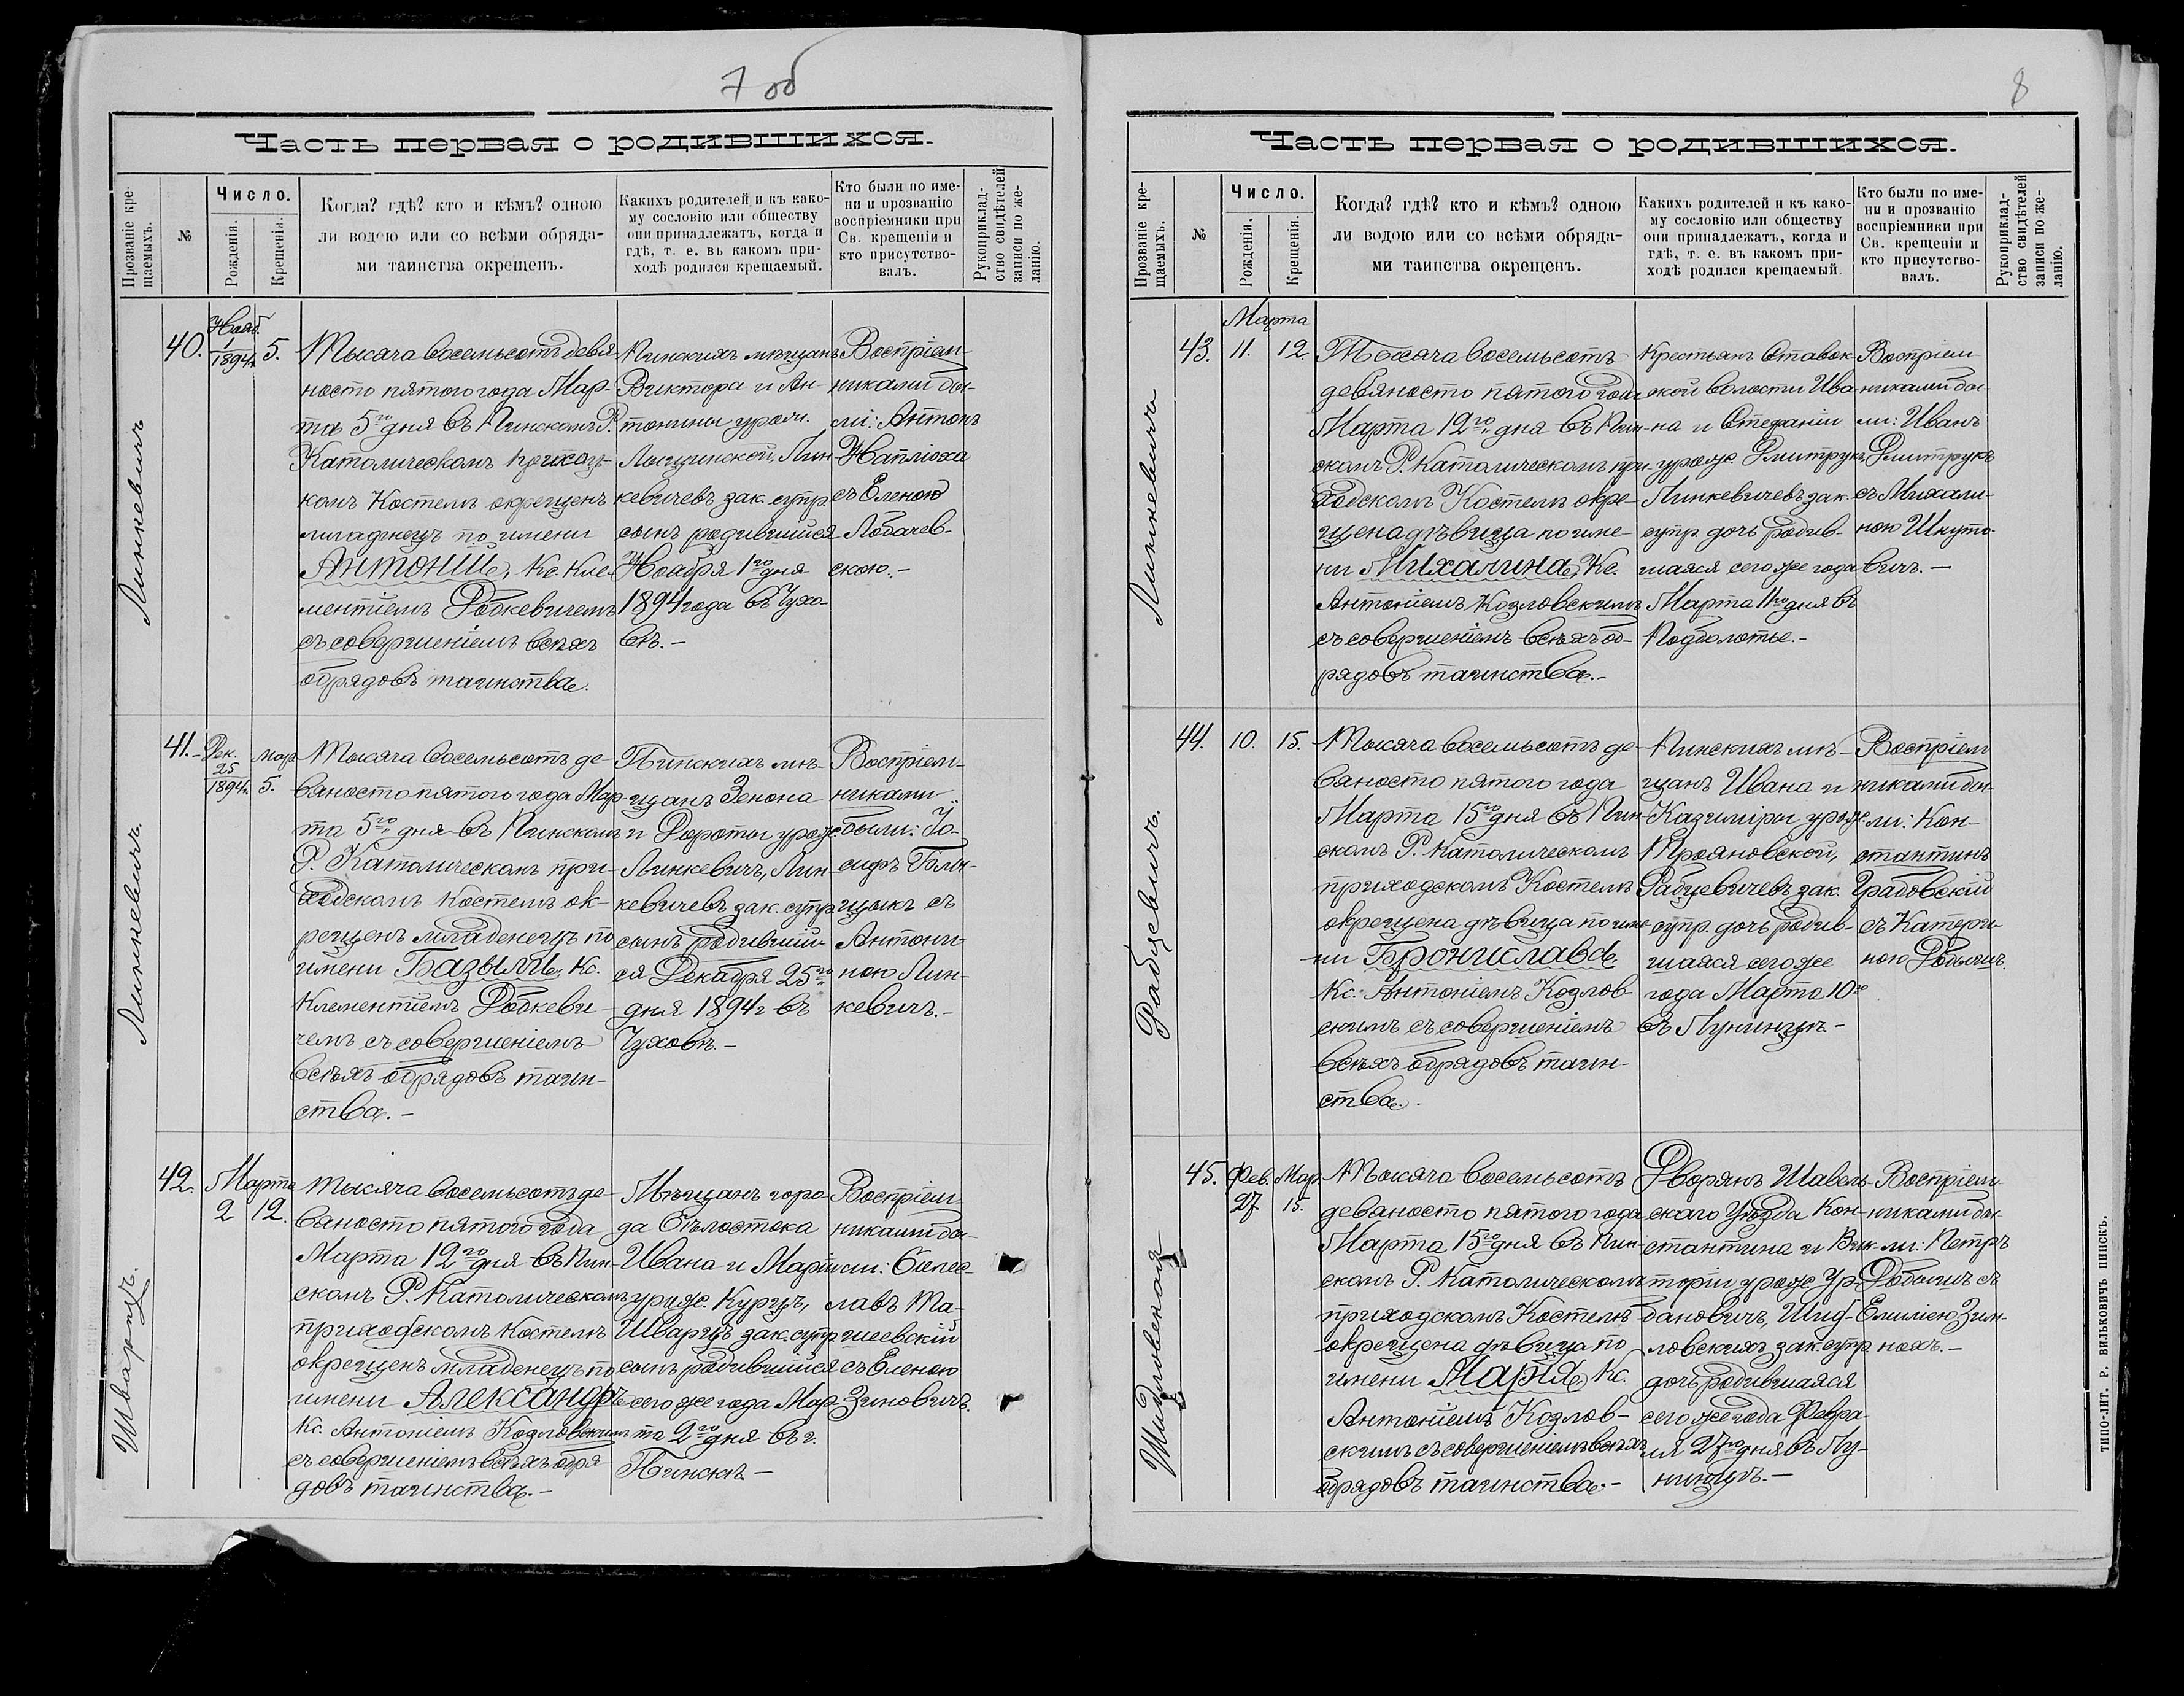 7 об
Часть первая о родившихся.
Прозваніе кре-
щаемыхъ.
№
Число.
Рожденія.
Крещенія.
Когда? гдѣ? кто и кѣмъ? одною
ли водою или со всѣми обряда-
ми таинства окрещенъ.
Какихъ родителей и къ како-
му сословію или обществу
они принадлежатъ, когда и
гдѣ, т. е. въ какомъ при-
ходѣ родился крещаемый.
Кто были по име-
ни и прозванію
воспріемники при
Св. крещеніи и
кто присутство-
валъ.
Рукоприклад-
ство свидѣтелей
записи по же-
ланію.
Линкевичъ
40.
Нояб.
1
1894г.
5.
Тысяча восемьсотъ девя-
носто пятого года Мар-
та 5го дня въ Пинскомъ Р.
Католическомъ приход-
комъ Костелѣ окрещенъ
младенецъ по имени
Антоній, Кс. Кле-
ментіемъ Робкевичемъ
съ совершеніемъ всѣхъ
обрядовъ таинства.
Пинскихъ мѣщанъ
Виктора и Ан-
тонины урожд.
Лющинской, Лин-
кевичевъ зак. супр.
сынъ родившійся
Ноября 1го дня
1894 года въ Чухо-
вѣ.-
Воспріем-
никами бы-
ли: Антонъ
Наплюха
съ Еленою
Лобачев-
скою.-
Линкевичъ.
41.-
Дек.
25
1894г.
Мар.
5.
Тысяча восемьсотъ де-
вяносто пятого года Мар-
та 5го дня въ Пинскомъ
Р. Католическомъ при-
ходскомъ Костелѣ ок-
рещенъ младенецъ по
имени Базылій, Кс.
Клементіемъ Робкеви-
чемъ съ совершеніемъ
всѣхъ обрядовъ таин-
ства.-
Пинскихъ мѣ-
щанъ Зенона
и Дороты урожд.
Линкевичъ, Лин-
кевичевъ зак. супр.
сынъ родивший-
ся Декабря 25го
дня 1894г въ
Чуховѣ.-
Воспріем-
никами
были: Іо-
сифъ
съ
Антони-
ною Лин-
кевичъ.-
Шварцъ.
42.
Марта
2
12.
Тысяча восемьсотъ де-
вяносто пятого года
Марта 12го дня въ Пин-
скомъ Р. Католическомъ
приходскомъ Костелѣ
окрещенъ младенецъ по
имени Александръ
Кс. Антоніемъ Козловскимъ
съ совершеніемъ всѣхъ обря-
довъ таинства.-
Мѣщанъ горо-
да Бѣлостока
Ивана и Маріи
урожд. Курцъ,
Шварцъ зак. супр.
сынъ родившійся
сего же года Мар-
та 2го дня въ г.
Пинскѣ-
Воспріем-
никами бы-
ли: Болес-
лавъ Ма-
съ Еленою
Зиновичъ.
8
Часть первая о родившихся.
Прозваніе кре-
щаемыхъ.
№
Число.
Рожденія.
Крещенія.
Когда? гдѣ? кто и кѣмъ? одною
ли водою или со всѣми обряда-
ми таинства окрещенъ.
Какихъ родителей и къ како-
му сословію или обществу
они принадлежатъ, когда и
гдѣ, т. е. въ какомъ при-
ходѣ родился крещаемый.
Кто были по име-
ни и прозванію
воспріемники при
Св. крещеніи и
кто присутство-
валъ.
Рукоприклад-
ство свидѣтелей
записи по же-
ланію.
Линкевичъ
43.
Марта
11.
12.
Тысяча восемьсотъ
девяносто пятого года
Марта 12го дня въ Пин-
скомъ Р. Католическомъ при-
ходскомъ Костелѣ окре-
щена дѣвица по име-
ни Михалина, Кс.
Антоніемъ Козловскимъ
съ совершеніемъ всѣхъ об-
рядовъ таинства.-
Крестьянъ Ставок-
ской волости Ива-
на и Стефаніи
урожд. Дмитрукъ,
Линкевичевъ зак.
супр. дочь родив-
шаяся сего же года
Марта 11го дня въ
Подболотье.-
Воспріем-
никами бы-
ли: Иванъ
Дмитрукъ
съ Михали-
ною Шкуто-
вичъ.-
Рабцевичъ.
44.
10.
15.
Тысяча восемьсотъ де-
вяносто пятого года
Марта 15го дня въ Пин-
скомъ Р. Католическомъ
приходскомъ Костелѣ
окрещена дѣвица по име-
ни Бронислава.
Кс. Антоніемъ Козлов-
скимъ съ совершеніемъ
всѣхъ обрядовъ таин-
ства.
Пинскихъ мѣ-
щанъ Ивана и
Казиміры урожд.
Трояновской,
Рабцевичевъ зак.
супр. дочь родив-
шаяся сего же
года Марта 10го
въ Лунинцѣ-
Воспріем-
никами бы-
ли: Кон-
стантинъ
Грабовскій
съ Катери-
ною Робычъ.
Шидловская
45.
Фев.
27
Мар.
15.
Тысяча восемьсотъ
девяносто пятого года
Марта 15го дня въ Пин-
скомъ Р. Католическомъ
приходскомъ Костелѣ
окрещена дѣвица по
имени Марія, Кс.
Антоніемъ Козлов-
скимъ съ совершеніемъ всѣхъ
обрядовъ таинства.-
Дворянъ Шавель-
скаго Уѣзда Кон-
стантина и Вик-
торіи урожд. Ур-
бановичъ, Шид-
ловскихъ зак. супр.
дочь родившаяся
сего же года Февра-
ля 27го дня въ Лу-
нинцѣ.-
Воспріем-
никами бы-
ли: Петръ
Робычъ съ
Емиліею Зим-
нохъ.-
ТИПО-ЛИТ. Р. ВИЛЬКОВИЧЪ ПИНСКЪ.